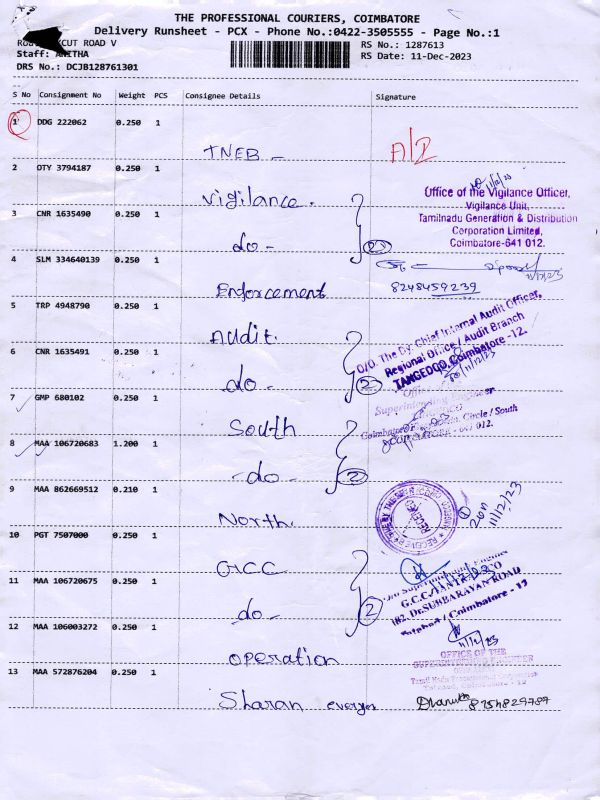 THE PROFESSIONAL COURIERS, COIMBATORE
Delivery Runsheet - PCX - Phone No.:0422-3505555 - Page No.:1
CUT ROAD V
RS No.: 1287613
Staff: ANITHA
RS Date: 11-Dec-2023
DRS No.: DCJB128761301
S No Consignment No Weight PCS Consignee Details Signature
1 DDG 222062 0.250 1
TNEB - A/I
2 OTY 3794187 0.250 1
Vigilance.
Office of the Vigilance Officer,
Vigilance Unit,
Tamilnadu Generation & Distribution
Corporation Limited,
Coimbatore-641 012.
3 CNR 1635490 0.250 1
do -
4 SLM 334640139 0.250 1
Endorcement 8248459239
5 TRP 4948790 0.250 1
Audit.
O/O. The Dy. Chief Internal Audit Officer,
Regional Office / Audit Branch
TANGEDCO, Coimbatore - 12.
6 CNR 1635491 0.250 1
do - 2
7 GMP 680102 0.250 1
South
Superintending Engineer
Circle / South
641 012.
8 MAA 106720683 1.200 1
- do - 2
9 MAA 862669512 0.210 1
North.
RECEIVED
11/12/23
10 PGT 7507000 0.250 1
GCC
11 MAA 106720675 0.250 1
do - 2
G.C.C./TANTRANSCO
182, Dr.SUBBARAYAN ROAD
Tatabad / Coimbatore - 12
12 MAA 106003272 0.250 1
operation
11/12/23
OFFICE OF THE
SUPERINTENDING ENGINEER
13 MAA 572876204 0.250 1
Sharan 8754829787